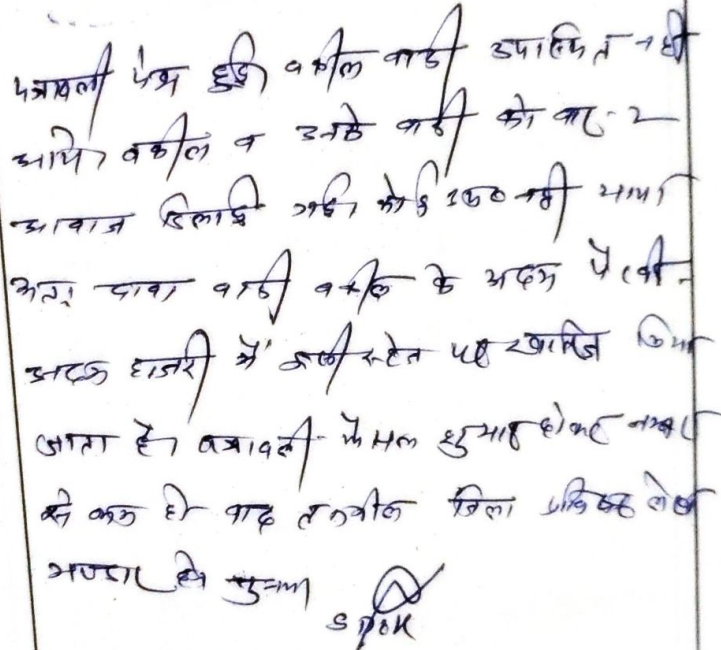 पत्रावली पेश हुई। वकील वादी उपस्थित नही
आये। वकील व उनके वादी को बार-2
आवाज दिलाई गई। कोई नही आया
अतः दावा वादी वकील के अदम पैरवी-
अदम हाजरी में पर खारिज किया
जाता है। पत्रावली फैसल शुमार होकर नम्बर
से कम हो बाद तकमील जिला लेख
भण्डार हो